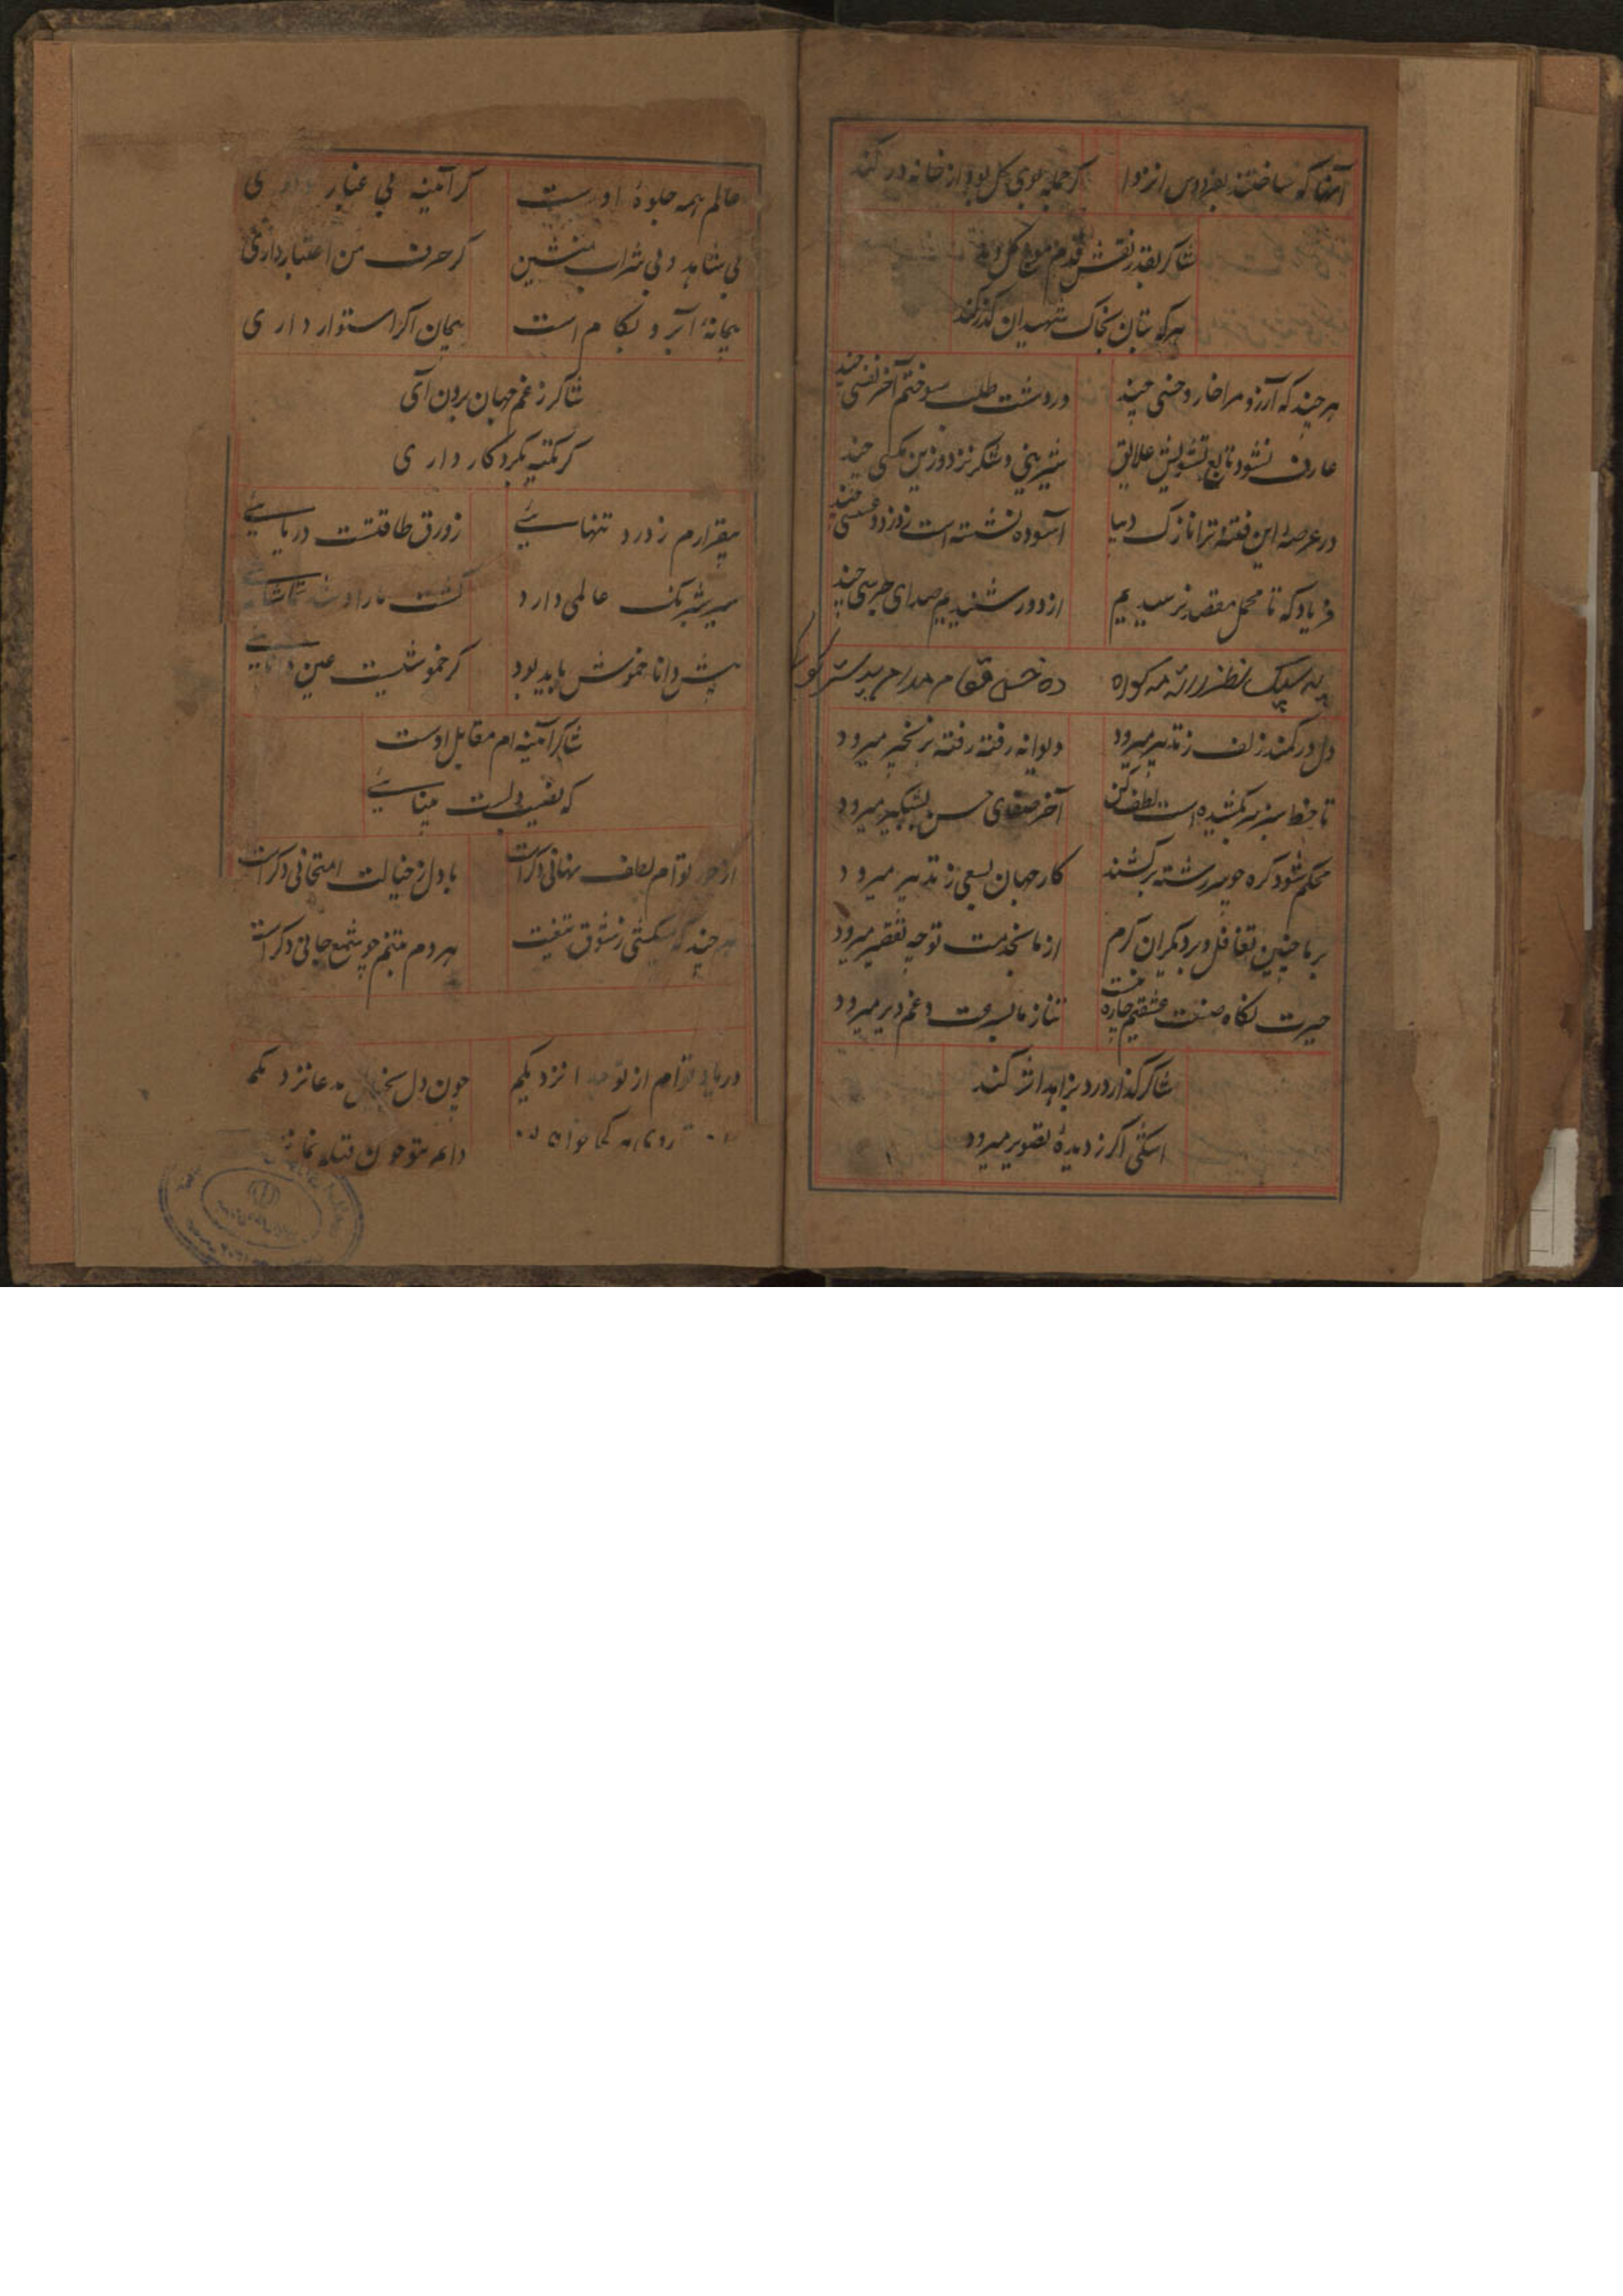 آنها که ساختند بفردوس انزوا گر جمله بوی گل بود از خانه در کنند
شاکر بقدر نقش قدم موج گل زند
هرکه بتان بخاک شهیدان گذر کنند
هر چند که آرزو مرا خار و خسی چند در دشت طلب سوختم آخر نفسی چند
عارف نشود تابع تشویش علایق شیرینی و شکر نزد وزین مگسی چند
در عرصهٔ این فتنه ترا نازک دیبا آسوده نشسته است ز دزد و عسسی چند
فریاد که تا محمل مقصد نرسیدیم از دور شنیدیم صدای جرسی چند
دل در کمند زلف ز تدبیر میرود دیوانه رفته رفته بزنجیر میرود
تا خط سبز سر نکشیده است لطف کن آخر صفای حسن بشبگیر میرود
محکم شود گره چو سر رشته برکشند کار جهان بسعی ز تدبیر میرود
بر ما چنین تغافل و بر دیگران کرم از ما بخدمت تو چه تقصیر میرود
حیرت نگاه صنعت عشقیم چاره نیست
شاکر گذار درد بزاهد اثر کند
اشکی اگر ز دیدهٔ تصویر میرود
عالم همه جلوهٔ اوست گر آئینه بی غبار داری
بی شاهد و بی شراب منشین گر حرف من اعتبار داری
پیمانهٔ آبرو بکام است پیمان اگر استوار داری
شاکر ز غم جهان برون آی
گر تکیه بکردگار داری
بیقرارم ز درد تنهائی زورق طاقتست دریائی
سیر نیرنگ عالمی دارد گشت ما را
پیش دانا خموش باید بود که خموشیست عین دانائی
شاکر آئینه ام مقابل اوست
که نصیب دلست بینائی
از جور توام لطف نهانی دگر است با دل ز خیالت امتحانی دگر است
هر چند که میکشی ز شوق تیغت هر دم بتنم چو شمع جانی دگر است
در یاد توام از تو نزدیکم چون دل بخیال مدعا نزدیکم